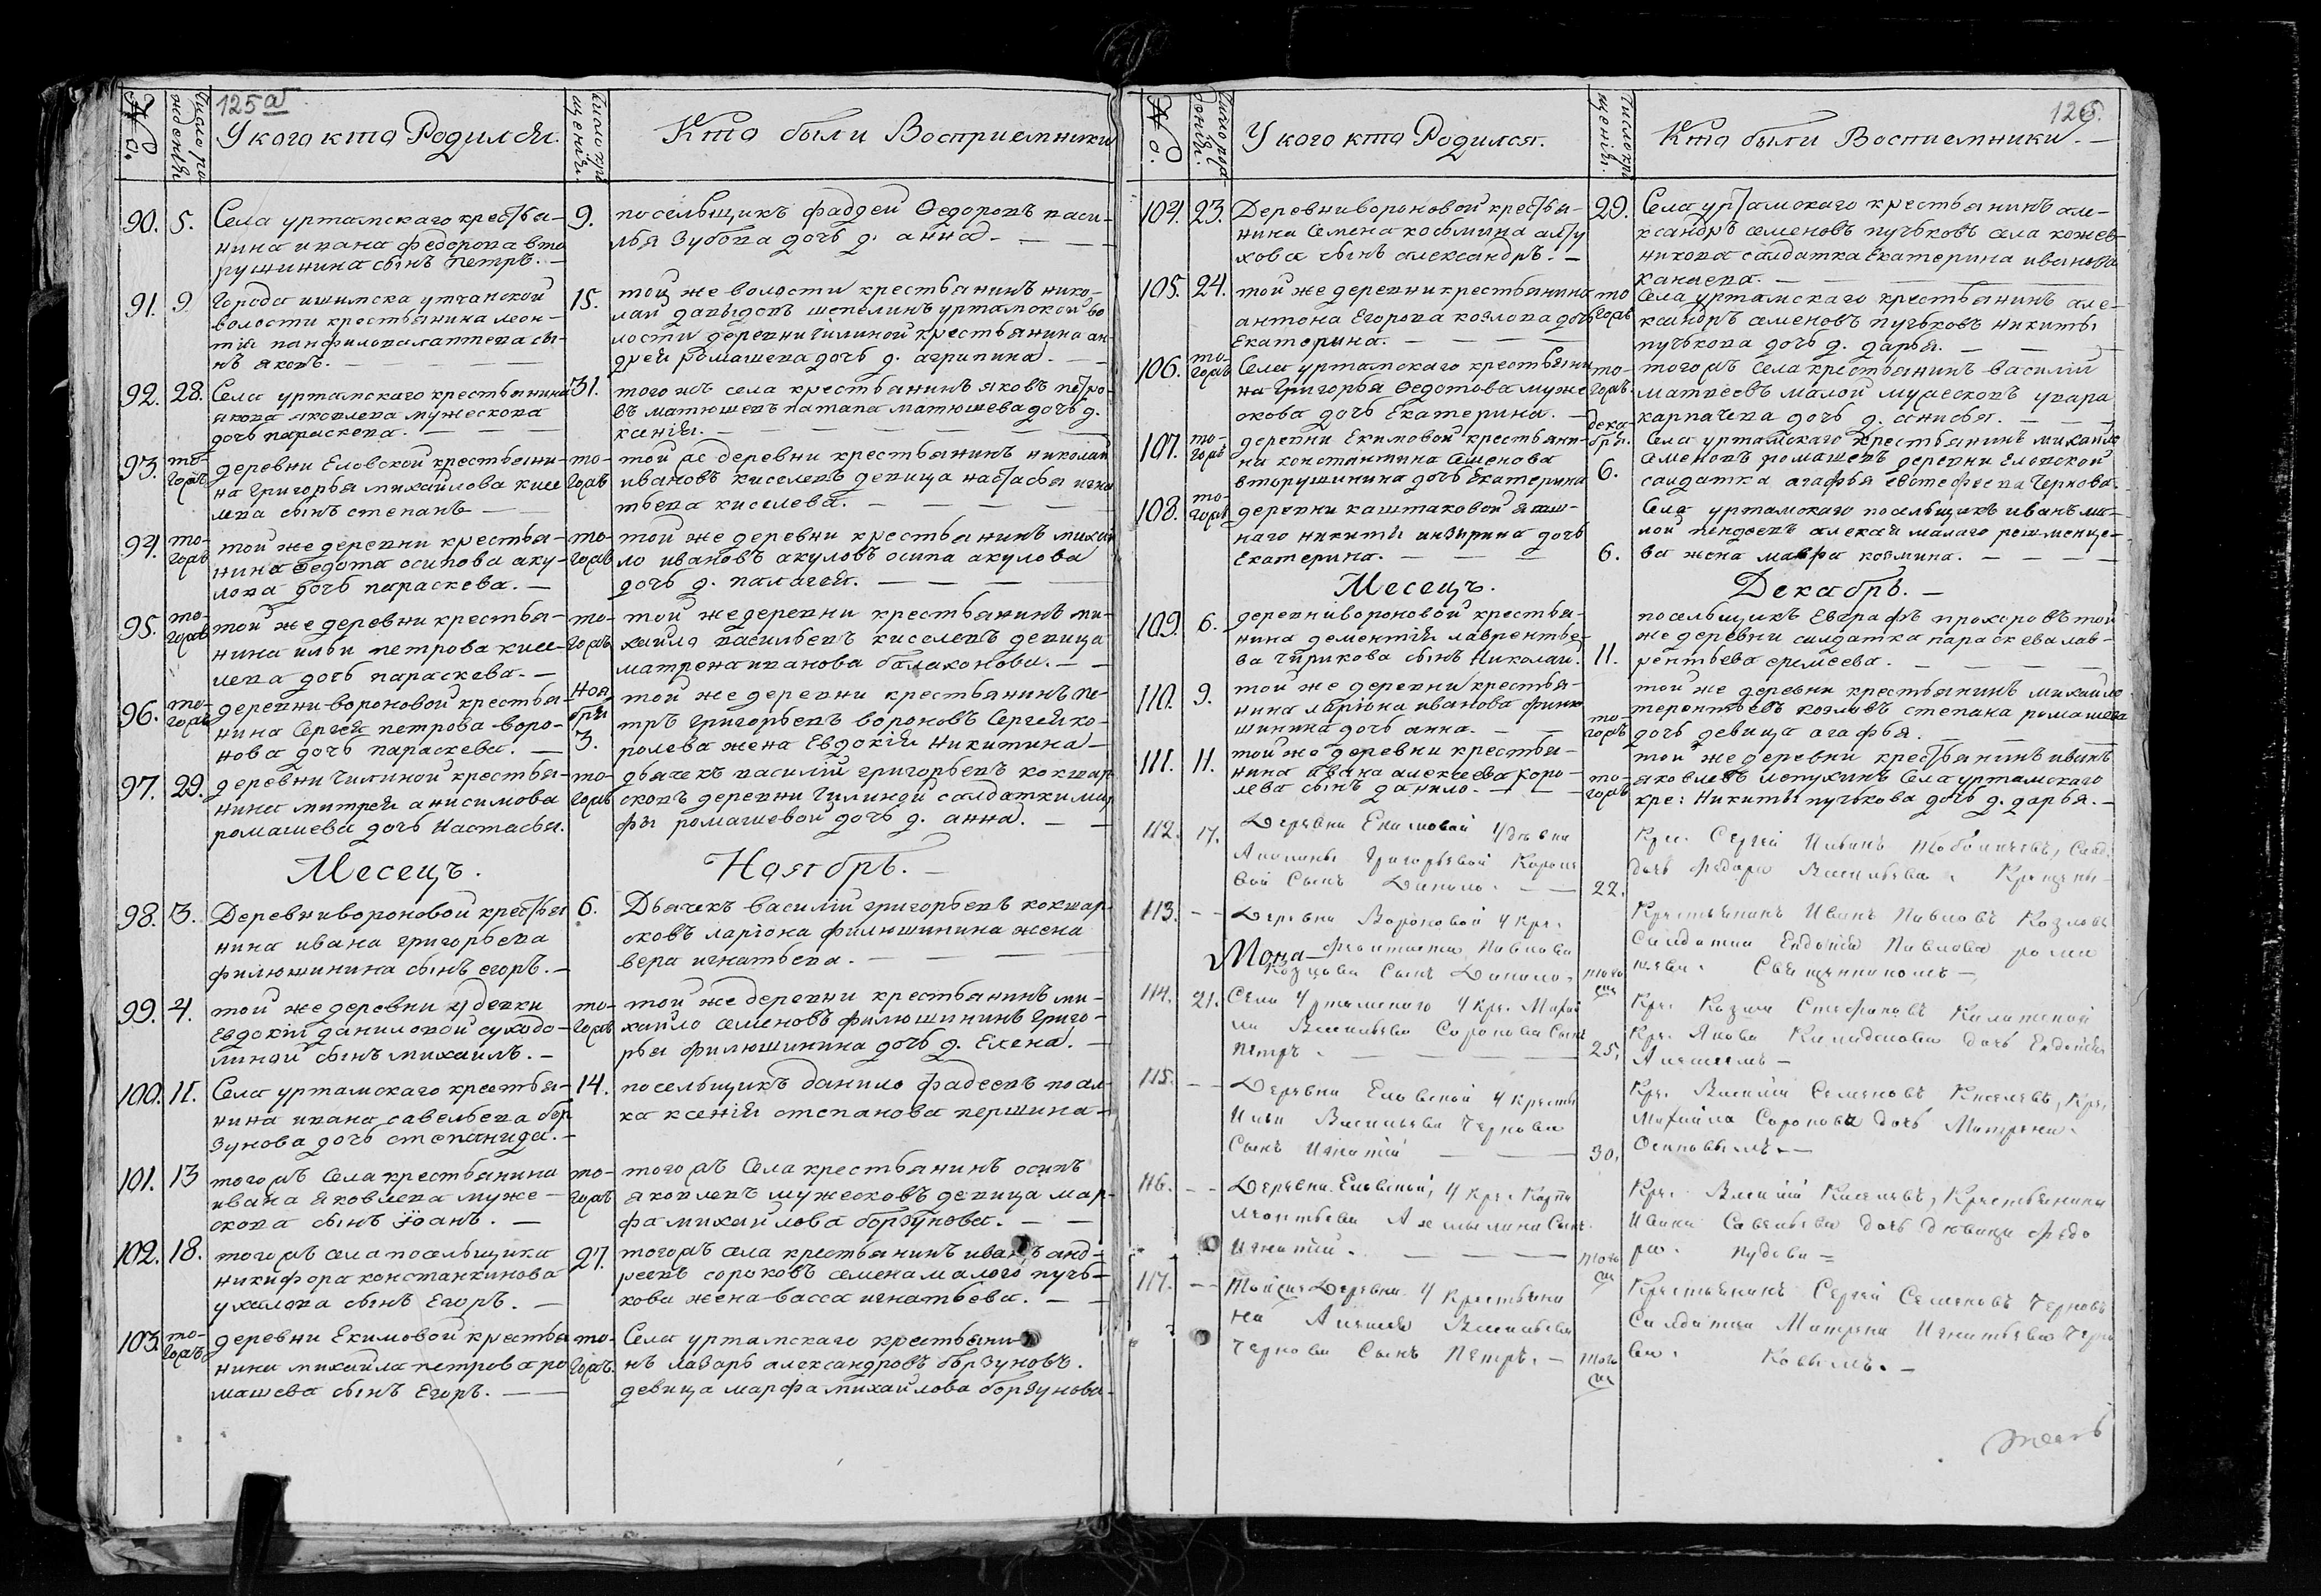 125 а
№ о.
Число рождения
У кого кто Родился.
Число крещения.
Кто были Восприемники
90. 5. Села уртамскаго крестья-
нина ивана федорова вто
рушинина сынъ петръ. —
9. посельщикъ фаддей Ѳедоровъ васи-
лья Зубова дочь д. анна. — —
91. 9 Города ишимска утчанской
волости крестьянина леон-
тия панфилова лаптева сы-
нъ яковъ. —
15. той же волости крестьянинъ нико-
лай давыдовъ шепелинъ уртамской во
лости деревни чилиной крестьянина ан-
дрея ромашева дочь д. агрипина. —
92. 28. Села уртамскаго крестьянина
якова яковлева мужескова
дочь параскева. —
31. того жъ села крестьянинъ яковъ петро-
въ матюшевъ патапа матюшева дочь д.
ксения. —
93. то-
гожъ деревни Еловской крестьяни-
на григорья михайлова кисе
лева сынъ степанъ —
то-
гожъ той же деревни крестьянинъ николай
ивановъ киселевъ девица настасья игна
тьева киселева. —
94. то-
гожъ той же деревни крестья-
нина Ѳедота осипова аку-
лова дочь параскева. —
то-
гожъ той же деревни крестьянинъ михай
ло ивановъ акуловъ осипа акулова
дочь д. палагея. —
95. то-
гожъ той же деревни крестья-
нина ильи петрова кисе-
лева дочь параскева. —
то-
гожъ той же деревни крестьянинъ ми-
хайла васильевъ киселевъ девица
матрена иванова балахонова. —
96. то-
гожъ деревни вороновой крестья-
нина Сергея петрова воро-
нова дочь параскева. —
Ноя
бря
3. той же деревни крестьянинъ пе-
тръ григорьевъ вороновъ Сергея ко-
ролева жена Евдокия Никитина —
97. 29. деревни чилиной крестья-
нина митрея анисимова
ромашева дочь Настасья.
то-
гожъ дьячекъ василий григорьевъ кокшар
сковъ деревни чилиной салдатки мар
фы ромашевой дочь д. анна. —
Месецъ.
Ноябрь. —
98. 3. Деревни вороновой крестья
нина ивана григорьева
филюшинина сынъ егоръ. —
6. Дьячекъ василий григорьевъ кокшар
сковъ лариона филюшинина жена
вера игнатьева. —
99. 4. той же деревни у девки
Евдокии даниловой суходо-
линой сынъ михаилъ. —
то-
гожъ той же деревни крестьянинъ ми-
хайло семеновъ филюшининъ григо-
рья филюшинина дочь д. Елена. —
100. 11. Села уртамскаго крестья-
нина ивана савельева бор
зунова дочь степанида. —
14. посельщикъ данило фадеевъ посел-
ка ксения степанова першина —
101. 13 того жъ Села крестьянина
ивана яковлева муже-
скова сынъ Іоанъ. —
то-
гожъ того жъ Села крестьянинъ осипъ
яковлевъ мужесковъ девица мар-
фа михайлова борзунова. —
102. 18. того жъ села посельщика
никифора констанкинова
ухалова сынъ Егоръ. —
27. того жъ села крестьянинъ иванъ анд-
реевъ сороковъ семена малого пучь-
кова жена васса игнатьева. —
103. то-
гожъ деревни Екимовой крестья
нина михайла петрова ро
машева сынъ Егоръ. —
то-
гожъ. Села уртамскаго крестьяни-
нъ лазарь александровъ борзуновъ.
девица марфа михайлова борзунова.
126.
№ о.
Число рождения.
У кого кто Родился.
Число крещения.
Кто были Восприемники. —
104. 23. Деревни вороновой крестья-
нина Семена косьмина алту
хова сынъ александръ. —
29. Села уртамскаго крестьянинъ але-
ксандръ семеновъ пучьковъ села кожев-
никова салдатка Екатерина иванова
канаева. —
105. 24. той же деревни крестьянина
антона Егорова козлова дочь
Екатерина. —
то
гожъ Села уртамскаго крестьянинъ але-
ксандръ семеновъ пучьковъ никиты
пучькова дочь д. дарья. —
106. то-
гожъ Села уртамскаго крестьяни
на григорья Ѳедотова муже
скова дочь Екатерина. —
то-
гожъ. того жъ Села крестьянинъ василий
матвеевъ малой мужесковъ увара
карпачева дочь д. анисья. —
107. то-
гожъ деревни Екимовой крестьяни-
на константина Семенова
вторушинина дочь Екатерина
дека-
бря.
6. Села уртамскаго крестьянинъ михайло
Семеновъ ромашевъ деревни Еловской
салдатка агафья евстефеева чернова.
108. то-
гожъ деревни каштаковой ясаш-
наго никиты анзирина дочь
Екатерина. —
6. Села уртамскаго посельщикъ иванъ ма-
лой алексая малаго
ва жена мавра козмина. —
Месецъ.
Декабрь. —
109. 6. деревни вороновой крестья-
нина дементия лаврентье-
ва чирикова сынъ Николай.
11. посельщикъ Евграфъ прохоровъ той
же деревни салдатка параскева лав-
рентьева еремеева. —
110. 9. той же деревни крестья-
нина лариона иванова филю
шинина дочь анна. —
то-
гожъ той же деревни крестьянинъ михайло
терентьевъ козловъ степана ромашева
дочь девица агафья. —
111. 11. той же деревни крестья-
нина ивана алексеева коро-
лева сынъ данило. —
то-
гожъ той же деревни крестьянинъ иванъ
яковлевъ лепухинъ Села уртамскаго
кре: Никиты пучькова дочь д. дарья. —
112. 17. Деревни Екимовой у девки
Григорьевой Короле
вой Сынъ Данило. —
22. Крес. Сергей Салд.
дочь Федора Васильева.
113. — — Деревни Вороновой у кре.
Павлова
Козлова Сынъ Данило.
Мона—
тогожъ Крестьянинъ Иванъ Павловъ Козловъ
Салдатка Евдокия Павлова рома
шева. Священникомъ —
114. 21. Села Уртамскаго у кре. Михай
ла Васильева Сорокова Сынъ
Петръ. —
25. Кре. Козма Стефановъ
Кре. Якова дочь Евдокия
Алексеемъ —
115. — — Деревни Еловской у кресть
Ильи Васильева Чернова
Сынъ Игнатий —
30. Кре. Василий Семеновъ Киселевъ, Кре.
Михайла Сорокова дочь Матрена.
Осиповымъ. —
116. — — Деревни Еловской, у кре. Карпа
Леонтьева Сынъ
Игнатий. —
тогожъ Кре. Василий Киселевъ, Крестьянина
Ивана Савельева дочь девица Федо
ра.
117. — — Тойже Деревни у крестьяни
на Алексея Васильева
Чернова Сынъ Петръ. —
тогожъ Крестьянинъ Сергей Семеновъ Черновъ
Салдатка Матрена Игнатьева Черно
ва. —